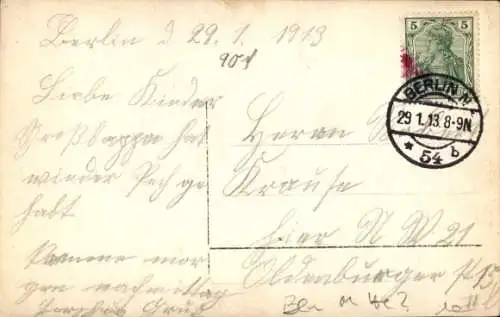 Berlin d 29. 1. 1913
Liebe Kinder
Großpappa hat
wieder Pech ge
habt
Komme mor
gen nachmittag
Gruß
5 5
BERLIN N
29.1.13.8-9N
* 54 b
Herrn
Krause
hier N W 21
Oldenburger st 15